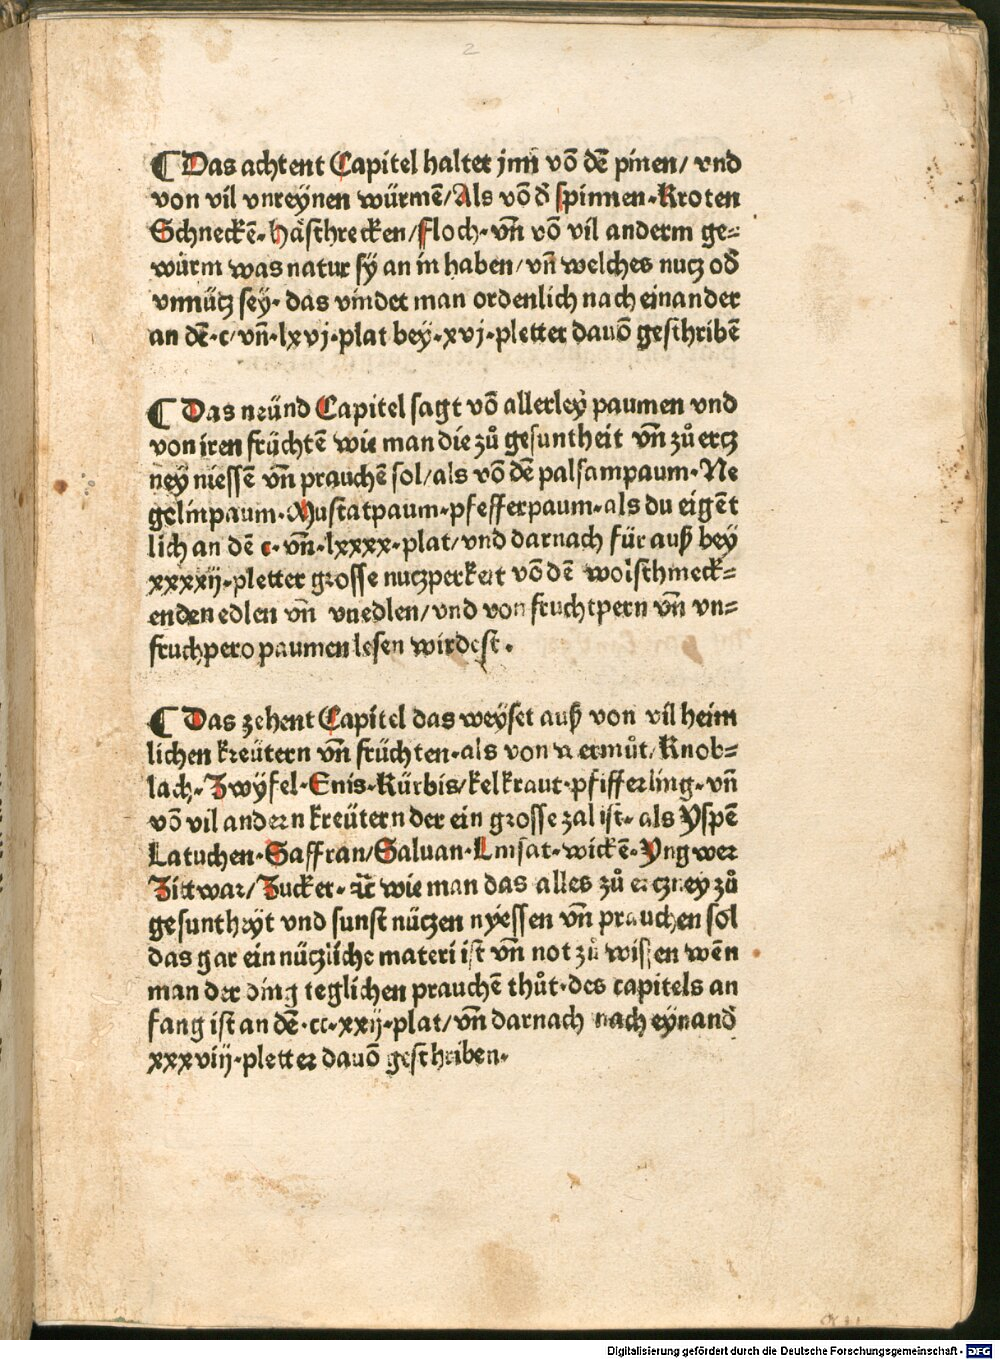 2
¶ Das achtent Capitel haltet jnn võ dẽ pinen/ vnd
von vil vnreynen würmẽ/Als võ đ spinnen·Kroten
Schneckẽ·häschrecken/floch·vñ võ vil anderm ge⸗
würm was natur sÿ an in haben/vñ welches nutz ođ
vnnütz seÿ· das vindet man ordenlich nach einander
an dẽ·c/vñ·lxvj·plat beÿ·xvj·pletter dauõ geschribẽ
¶ Das neünd Capitel sagt võ allerleÿ paumen vnd
von iren früchtẽ wie man die zů gesuntheit vñ zů ertz
neÿ niessẽ vñ prauchẽ sol/als võ dẽ palsampaum·Ne
gelinpaum·Muscatpaum·pfefferpaum·als du eigẽt
lich an dẽ c·vñ·lxxxx·plat/vnd darnach für auß beÿ
xxxxij·pletter grosse nutzperkeit võ dẽ wolschmeck⸗
enden edlen vñ vnedlen/vnd von fruchtpern vñ vn⸗
fruchpero paumen lesen wirdest.
¶ Das zehent Capitel das weÿset auß von vil heim
lichen kreütern vñ früchten·als von wermůt/Knob⸗
lach·Zwÿfel·Enis·Kürbis/kelkraut·pfifferling·vñ
võ vil andern kreütern der ein grosse zal ist·als Yspẽ
Latuchen·Saffran/Saluan·Linsat·wickẽ·Yngwer
Zittwar/Zucker·ꝛc̃ wie man das alles zů ertzney zů
gesuntheÿt vnd sunst nützen nÿessen vñ prauchen sol
das gar ein nützliche materi ist vñ not zů wissen wẽn
man der ding teglichen prauchẽ thůt·des capitels an
fang ist an dẽ·cc·xxij·plat/vñ darnach nach eÿnanđ
xxxviij·pletter dauõ geschriben·
Digitalisierung gefördert durch die Deutsche Forschungsgemeinschaft - DFG